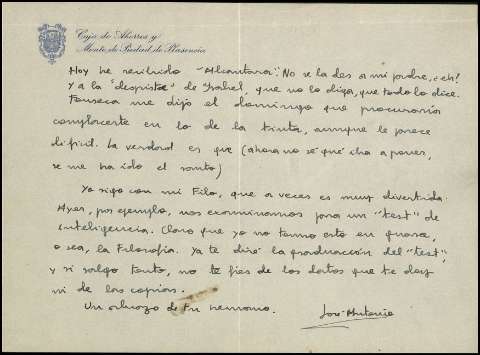 Caja de Ahorros y
Monte de Piedad de Plasencia
Hoy he recibido "Alcántara". No se la des a mi padre, ¿eh?
Y a la "despista" de Isabel, que no lo diga, que todo lo dice.
Fonseca me dijo el domingo que procuraría
complacerte en lo de la tinta, aunque le parece
difícil. La verdad es que (ahora no sé qué iba a poner,
se me ha ido el santo)
Yo sigo con mi Filo, que a veces es muy divertida.
Ayer, por ejemplo, nos examinamos para un "test" de
inteligencia. Claro que yo no tomo esto en
o sea, la Filosofía. Ya te diré la graduación del "test",
y si salgo tonto, no te fíes de los datos que te doy
ni de las copias.
Un abrazo de tu hermano.
José Antonio